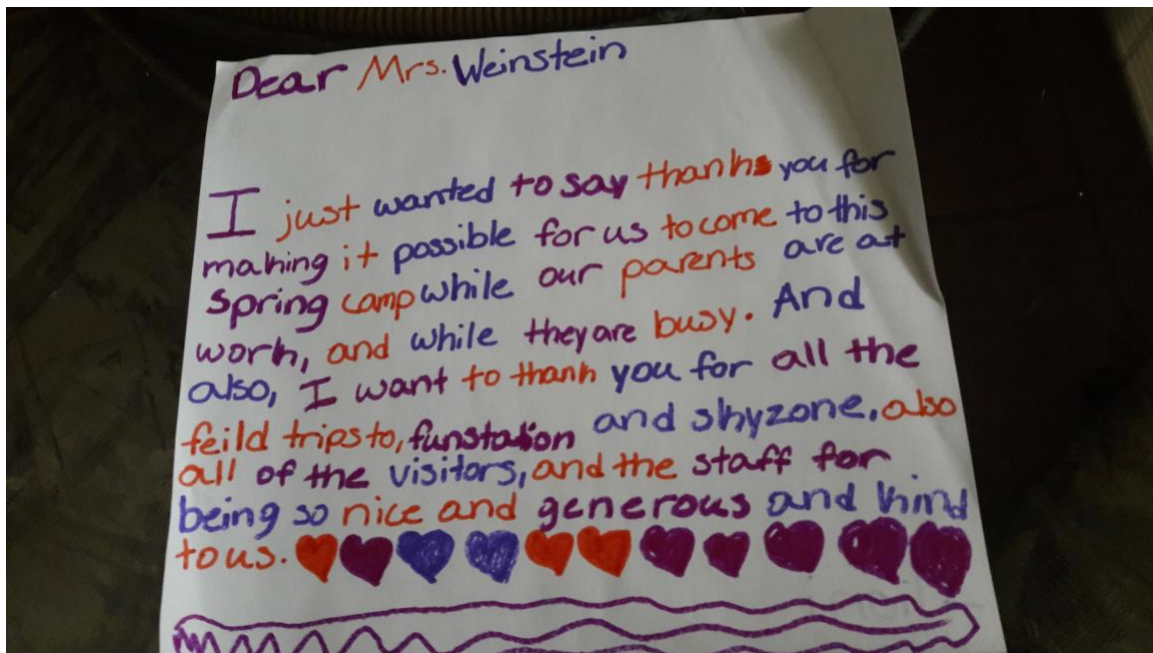 Dear Mrs. Weinstein
I just wanted to say thank you for
making it possible for us to come to this
spring camp while our parents are at
work, and while they are busy. And
also, I want to thank you for all the
feild trips to, funstation and skyzone, also
all of the visitors, and the staff for
being so nice and generous and kind
to us.